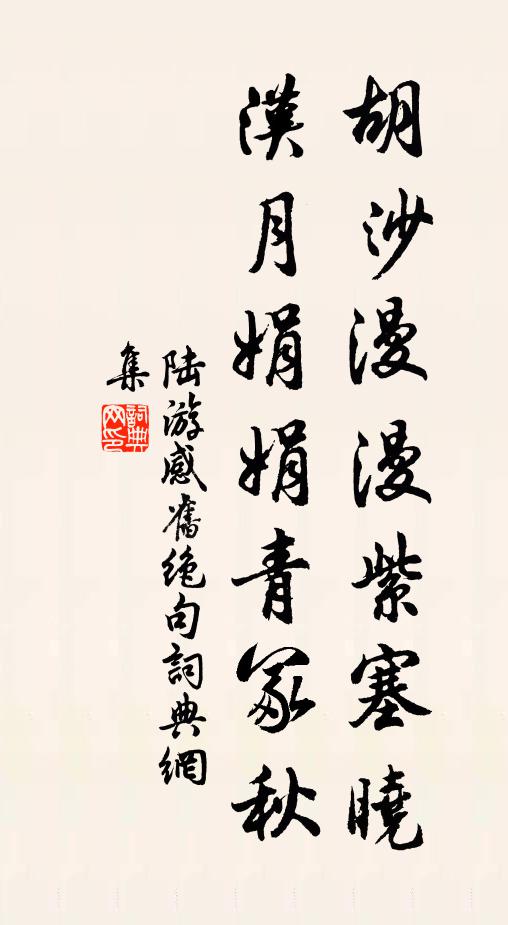 胡沙漫漫紫塞曉
漢月娟娟青冢秋
陸游感奮絕句詞典網
集
詞典網印